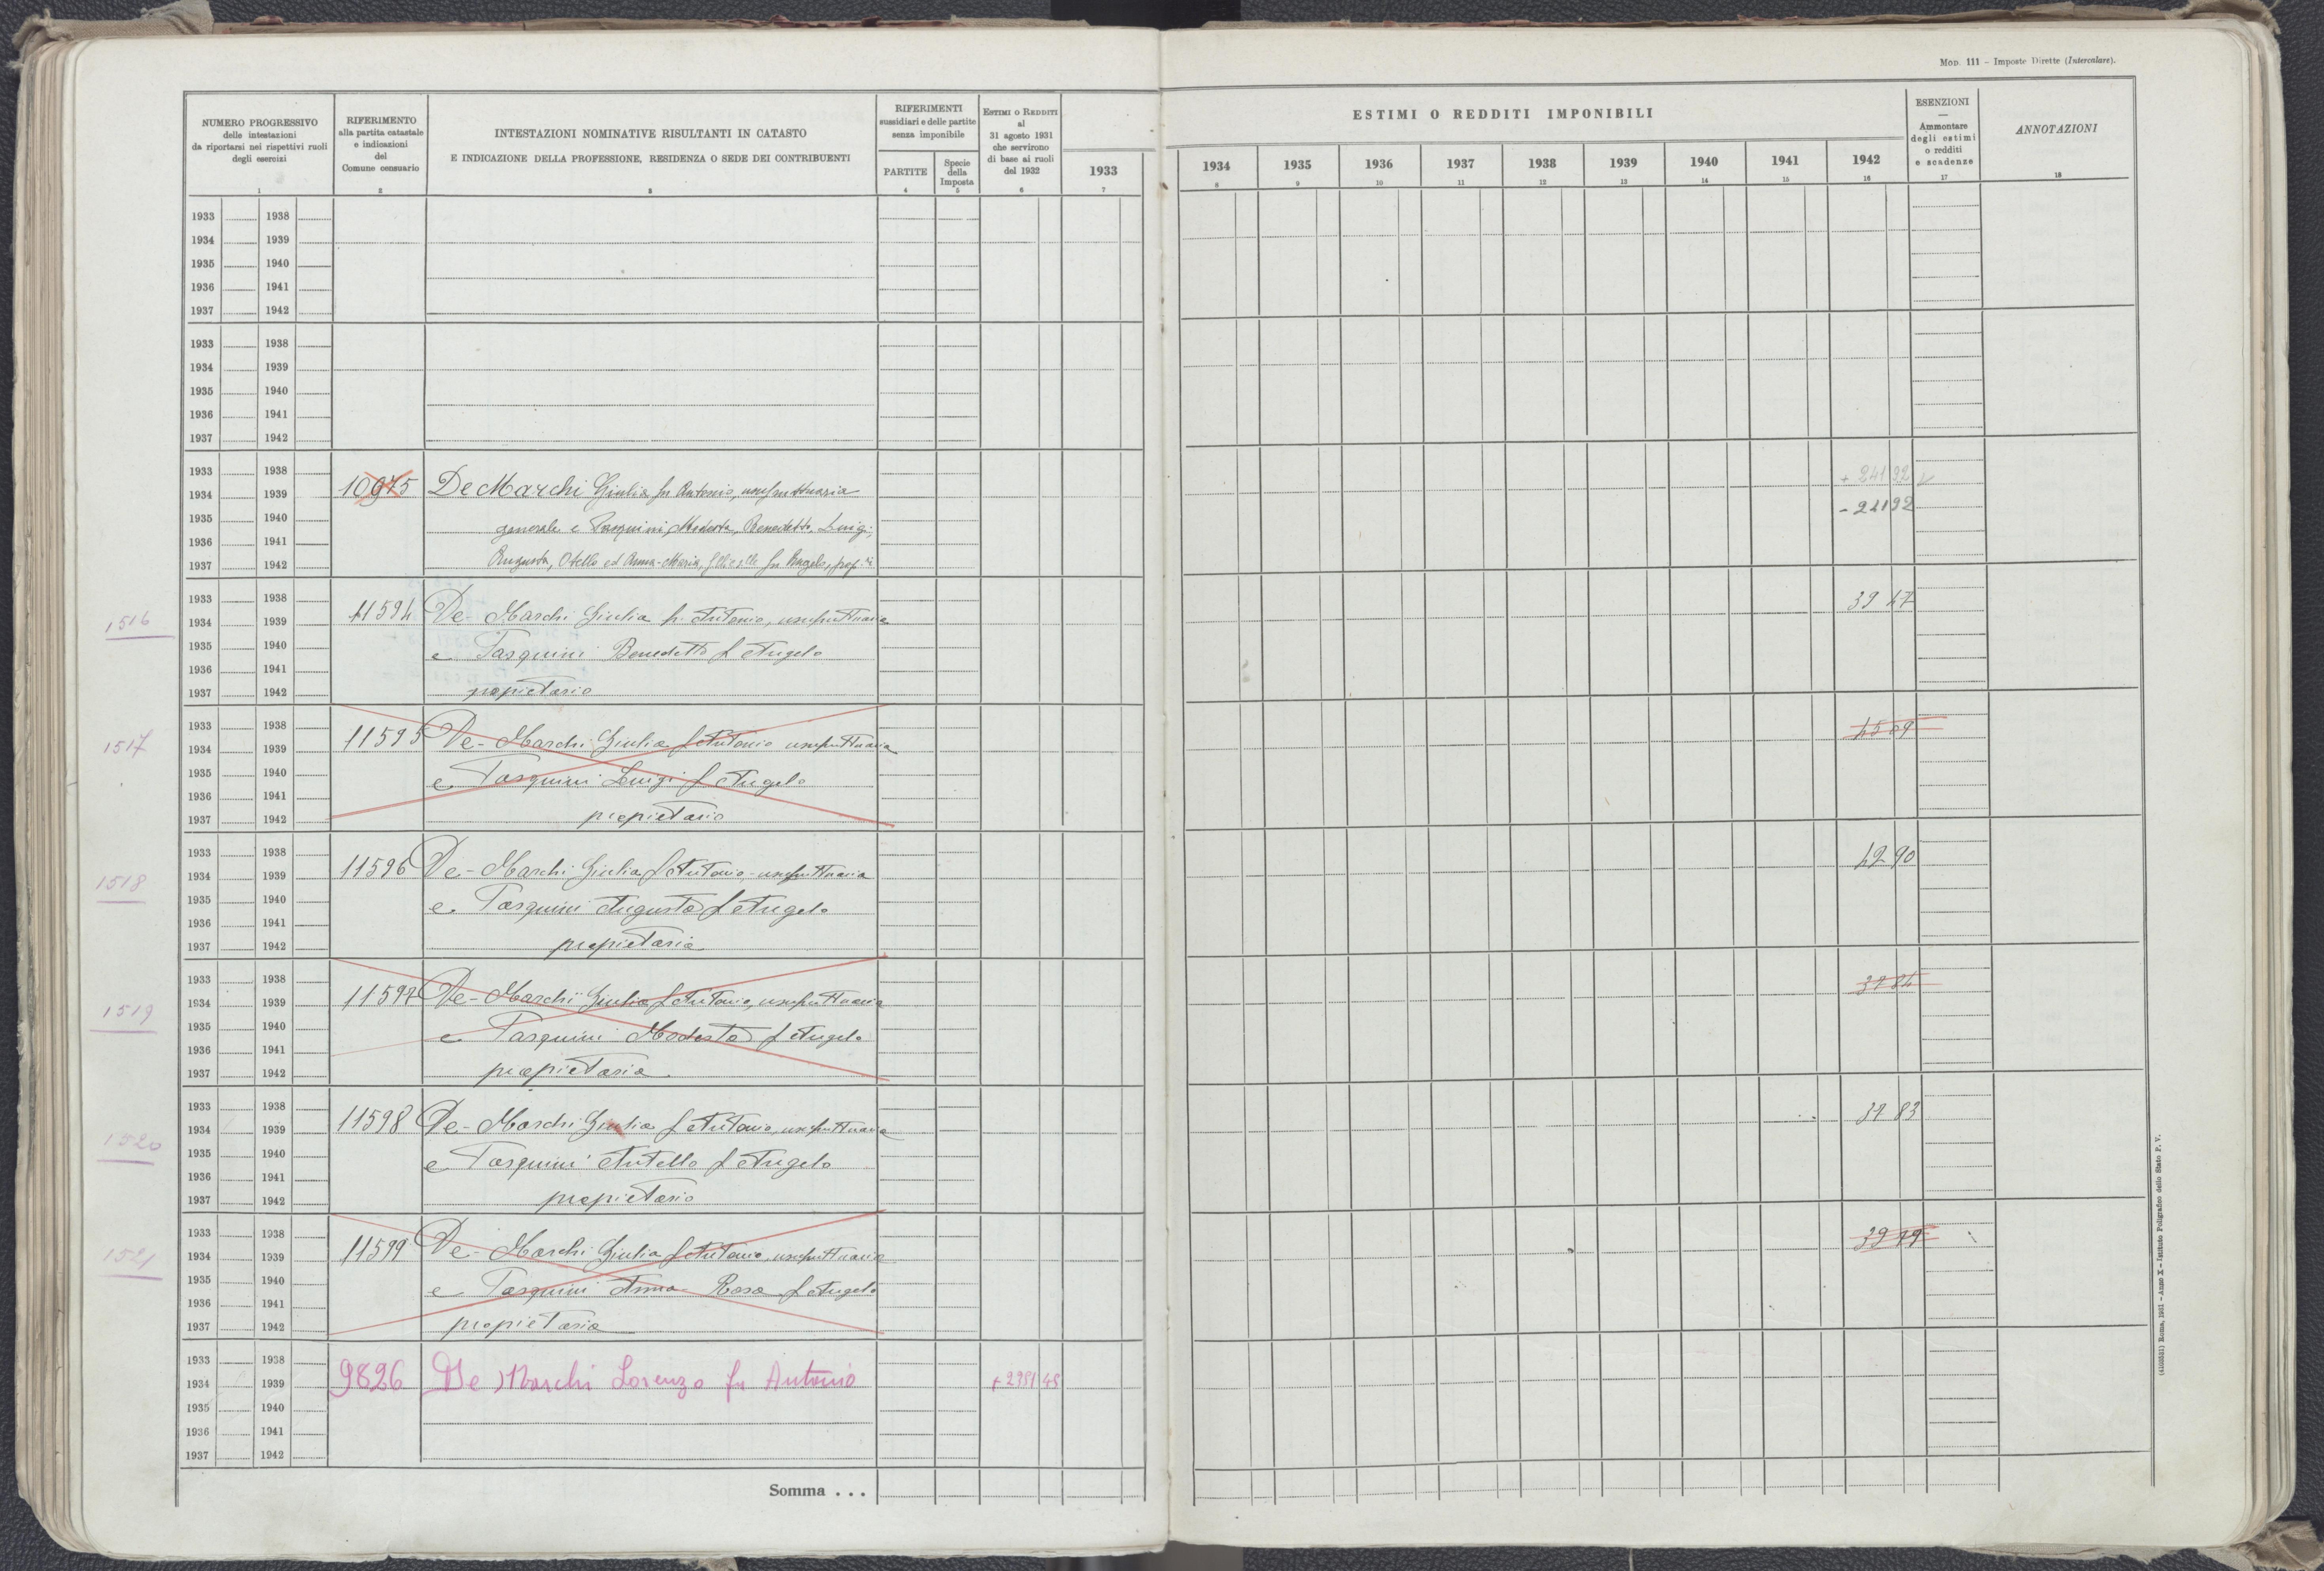 MOD. 111 – Imposte Dirette (Intercalare).
NUMERO PROGRESSIVO
delle intestazioni
da riportarsi nei rispettivi ruoli
degli esercizi
1
RIFERIMENTO
alla partita catastale
e indicazioni
del
Comune censuario
2
INTESTAZIONI NOMINATIVE RISULTANTI IN CATASTO
E INDICAZIONE DELLA PROFESSIONE, RESIDENZA O SEDE DEI CONTRIBUENTI
3
RIFERIMENTI
sussidiari e delle partite
senza imponibile
PARTITE
4
Specie
della
Imposta
5
ESTIMI O REDDITI
al
31 agosto 1931
che servirono
di base ai ruoli
del 1932
6
1933
7
ESTIMI O REDDITI IMPONIBILI
1934 1935 1936 1937 1938 1939 1940 1941 1942
8 9 10 11 12 13 14 15 16
ESENZIONI
—
Ammontare
degli estimi
o redditi
e scadenze
17
ANNOTAZIONI
18
1933 1938
1934 1939
1935 1940
1936 1941
1937 1942
1933 1938
1934 1939
1935 1940
1936 1941
1937 1942
1933 1938
1934 1939
1935 1940
1936 1941
1937 1942
10975 De Marchi Giulia fu Antonio, usufruttuaria
generale e Pasquini Modesta, Benedetto, Luigi,
Augusta, Otello ed Anna-Maria, f.lli e s.lle fu Angelo, prop.ri
+ 241 92
- 241 92
1516
1933 1938
1934 1939
1935 1940
1936 1941
1937 1942
11594 De-Marchi Giulia f. Antonio, usufruttuaria
e Pasquini Benedetto f Angelo
propietario
39 47
1517
1933 1938
1934 1939
1935 1940
1936 1941
1937 1942
11595 De-Marchi Giulia f Antonio usufruttuaria
e Pasquini Luigi f Angelo
propietario
45 09
1518
1933 1938
1934 1939
1935 1940
1936 1941
1937 1942
11596 De-Marchi Giulia f Antonio - usufruttuaria
e Pasquini Augusta f Angelo
propietaria
42 90
1519
1933 1938
1934 1939
1935 1940
1936 1941
1937 1942
11597 De-Marchi Giulia f Antonio, usufruttuaria
e Pasquini Modesta f Angelo
propietaria
37 84
1520
1933 1938
1934 1939
1935 1940
1936 1941
1937 1942
11598 De-Marchi Giulia f Antonio, usufruttuaria
e Pasquini Antello f Angelo
propietario
37 83
1521
1933 1938
1934 1939
1935 1940
1936 1941
1937 1942
11599 De-Marchi Giulia f Antonio, usufruttuaria
e Pasquini Anna Rosa f Angelo
propietaria
39 79
1933 1938
1934 1939
1935 1940
1936 1941
1937 1942
9826 De Marchi Lorenzo fu Antonio
+ 2981 48
Somma . . .
(4100531) Roma, 1931 – Anno X – Istituto Poligrafico dello Stato P. V.